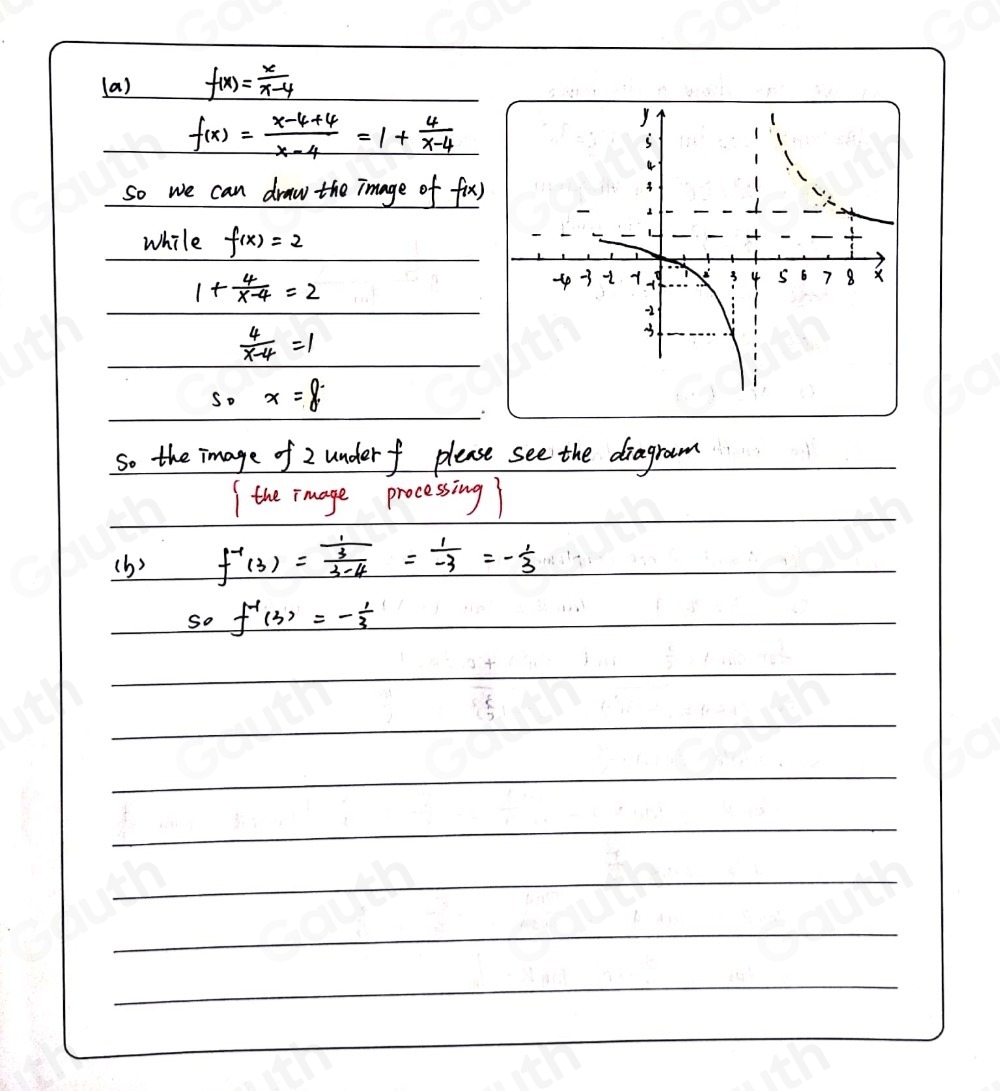 (a) f(x) = x/(x-4)
f(x) = (x-4+4)/(x-4) = 1 + 4/(x-4)
so we can draw the image of f(x)
while f(x) = 2
1 + 4/(x-4) = 2
4/(x-4) = 1
so x = 8.
So the image of 2 under f please see the diagram
{ the image processing }
(b) f⁻¹(3) = (1/3)/(3-4) = 1/-3 = -1/3
so f⁻¹(3) = -1/3
y
5
4
3
2
-4 -3 -2 -1 1 2 3 4 5 6 7 8 x
-1
-2
-3
Gauth